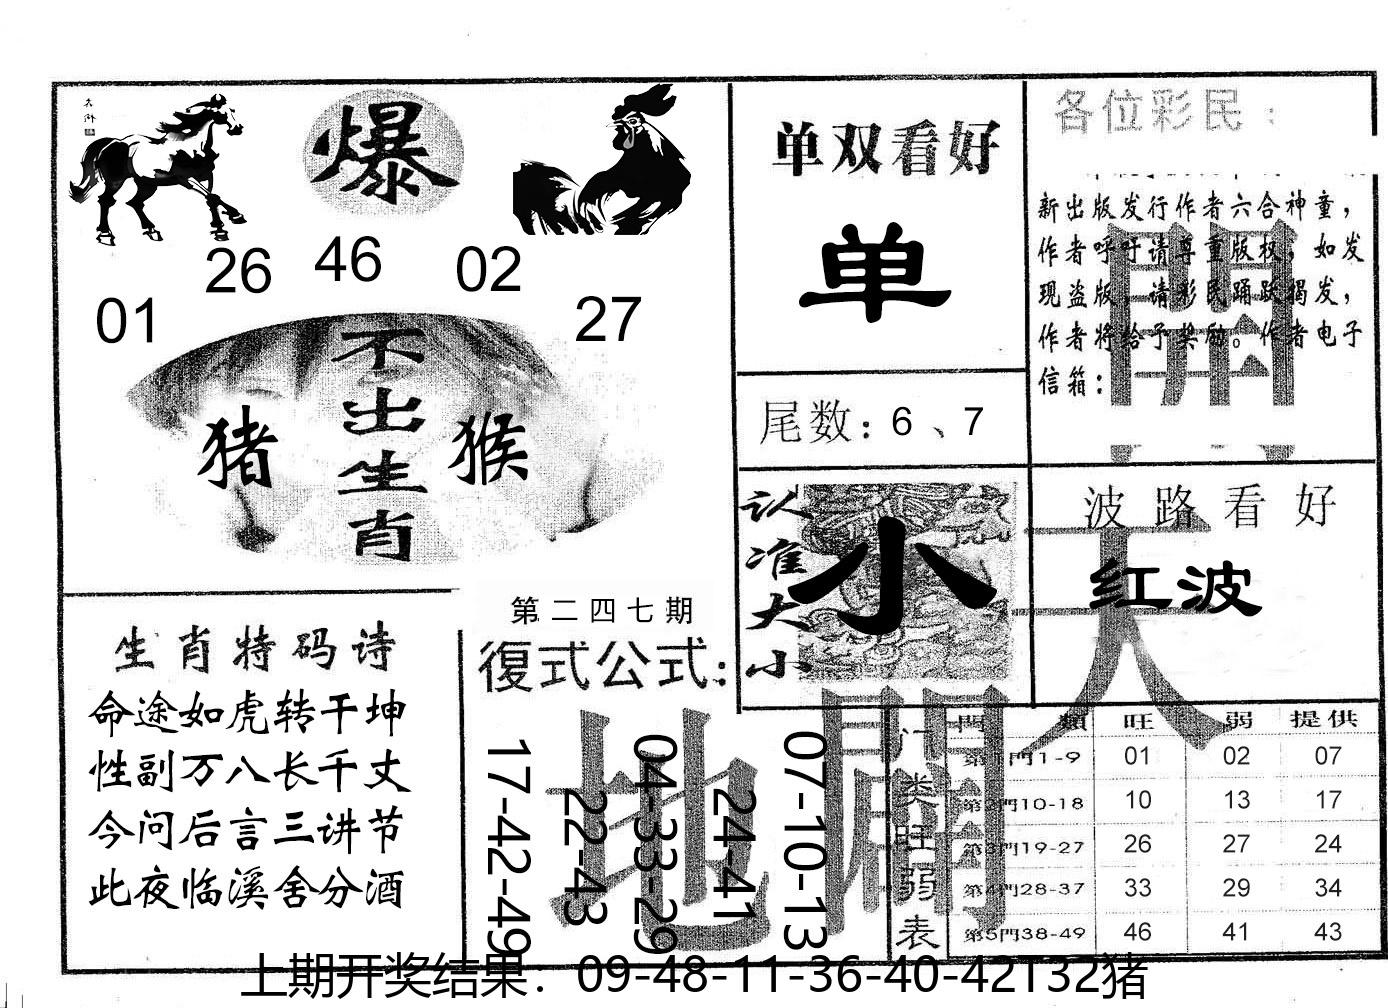 爆
26 46 02
01 27
不出生肖
猪 猴
单双看好
单
尾数：6、7
各位彩民：
新出版发行作者六合神童，
作者呼吁请尊重版权，如发
现盗版，请彩民踊跃揭发，
作者将给予奖励。作者电子
信箱：
认准大小
小
波路看好
红波
天
開
地
闢
生肖特码诗
命途如虎转干坤
性副万八长千丈
今问后言三讲节
此夜临溪舍分酒
第二四七期
復式公式：
17-42-49
22-43
04-33-29
24-41
07-10-13
门类旺弱表
門 類 旺 弱 提供
第1門1-9 01 02 07
第2門10-18 10 13 17
第3門19-27 26 27 24
第4門28-37 33 29 34
第5門38-49 46 41 43
上期开奖结果：09-48-11-36-40-42T32猪